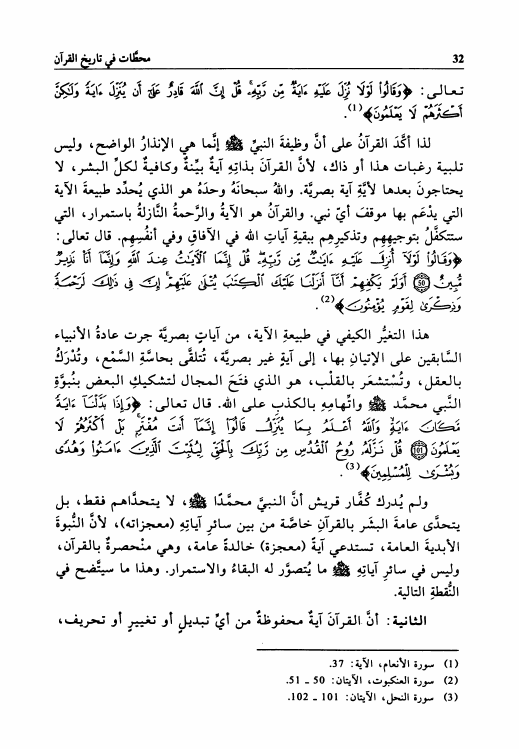 32 محطَّات في تاريخ القرآن
تعالى: ﴿وَقَالُواْ لَوۡلَا نُزِّلَ عَلَيۡهِ ءَايَةٞ مِّن رَّبِّهِۦۚ قُلۡ إِنَّ ٱللَّهَ قَادِرٌ عَلَىٰٓ أَن يُنَزِّلَ ءَايَةٗ وَلَٰكِنَّ
أَكۡثَرَهُمۡ لَا يَعۡلَمُونَ﴾(1).
لذا أكَّدَ القرآنُ على أنَّ وظيفةَ النبيِّ ﷺ إنَّما هي الإنذارُ الواضح، وليس
تلبية رغبات هذا أو ذاك، لأنَّ القرآنَ بذاتِهِ آيةٌ بيِّنةٌ وكافيةٌ لكلِّ البشر، لا
يحتاجون بعدها لأيَّةِ آية بصريَّة. واللهُ سبحانَهُ وحدَهُ هو الذي يُحدِّد طبيعةَ الآية
التي يدعَم بها موقفَ أيِّ نبي. والقرآنُ هو الآيةُ والرَّحمةُ النَّازلةُ باستمرار، التي
ستتكفَّلُ بتوجيهِهم وتذكيرِهم ببقيةِ آياتِ الله في الآفاقِ وفي أنفسِهم. قال تعالى:
﴿وَقَالُواْ لَوۡلَآ أُنزِلَ عَلَيۡهِ ءَايَٰتٞ مِّن رَّبِّهِۦۚ قُلۡ إِنَّمَا ٱلۡأٓيَٰتُ عِندَ ٱللَّهِ وَإِنَّمَآ أَنَا۠ نَذِيرٞ
مُّبِينٌ ٥٠ أَوَلَمۡ يَكۡفِهِمۡ أَنَّآ أَنزَلۡنَا عَلَيۡكَ ٱلۡكِتَٰبَ يُتۡلَىٰ عَلَيۡهِمۡۚ إِنَّ فِي ذَٰلِكَ لَرَحۡمَةٗ
وَذِكۡرَىٰ لِقَوۡمٖ يُؤۡمِنُونَ﴾(2).
هذا التغيُّر الكيفي في طبيعةِ الآية، من آياتٍ بصريَّة جرت عادةُ الأنبياء
السَّابقين على الإتيانِ بها، إلى آيةٍ غير بصريَّة، تُتلقَّى بحاسَّةِ السَّمْع، وتُدْرَكُ
بالعقل، وتُسْتشعَر بالقلْب، هو الذي فتَحَ المجال لتشكيكِ البعض بنُبوَّةِ
النَّبي محمَّد ﷺ واتِّهامِهِ بالكذبِ على الله. قال تعالى: ﴿وَإِذَا بَدَّلۡنَآ ءَايَةٗ
مَّكَانَ ءَايَةٖ وَٱللَّهُ أَعۡلَمُ بِمَا يُنَزِّلُ قَالُوٓاْ إِنَّمَآ أَنتَ مُفۡتَرِۭۚ بَلۡ أَكۡثَرُهُمۡ لَا
يَعۡلَمُونَ ١٠١ قُلۡ نَزَّلَهُۥ رُوحُ ٱلۡقُدُسِ مِن رَّبِّكَ بِٱلۡحَقِّ لِيُثَبِّتَ ٱلَّذِينَ ءَامَنُواْ وَهُدٗى
وَبُشۡرَىٰ لِلۡمُسۡلِمِينَ﴾(3).
ولم يُدرك كُفَّار قريش أنَّ النبيَّ محمَّدًا ﷺ، لا يتحدَّاهم فقط، بل
يتحدَّى عامةَ البشَر بالقرآنِ خاصَّة من بين سائرِ آياتِهِ (معجزاته)، لأنَّ النُّبوةَ
الأبديةَ العامة، تستدعي آيةً (معجزة) خالدةً عامة، وهي منْحصرةٌ بالقرآن،
وليس في سائرِ آياتِهِ ﷺ ما يُتصوَّر له البقاءُ والاستمرار. وهذا ما سيتَّضح في
النُّقطةِ التالية.
الثانية: أنَّ القرآنَ آيةٌ محفوظةٌ من أيِّ تبديلٍ أو تغييرٍ أو تحريف،
(1) سورة الأنعام، الآية: 37.
(2) سورة العنكبوت، الآيتان: 50 ـ 51.
(3) سورة النحل، الآيتان: 101 ـ 102.